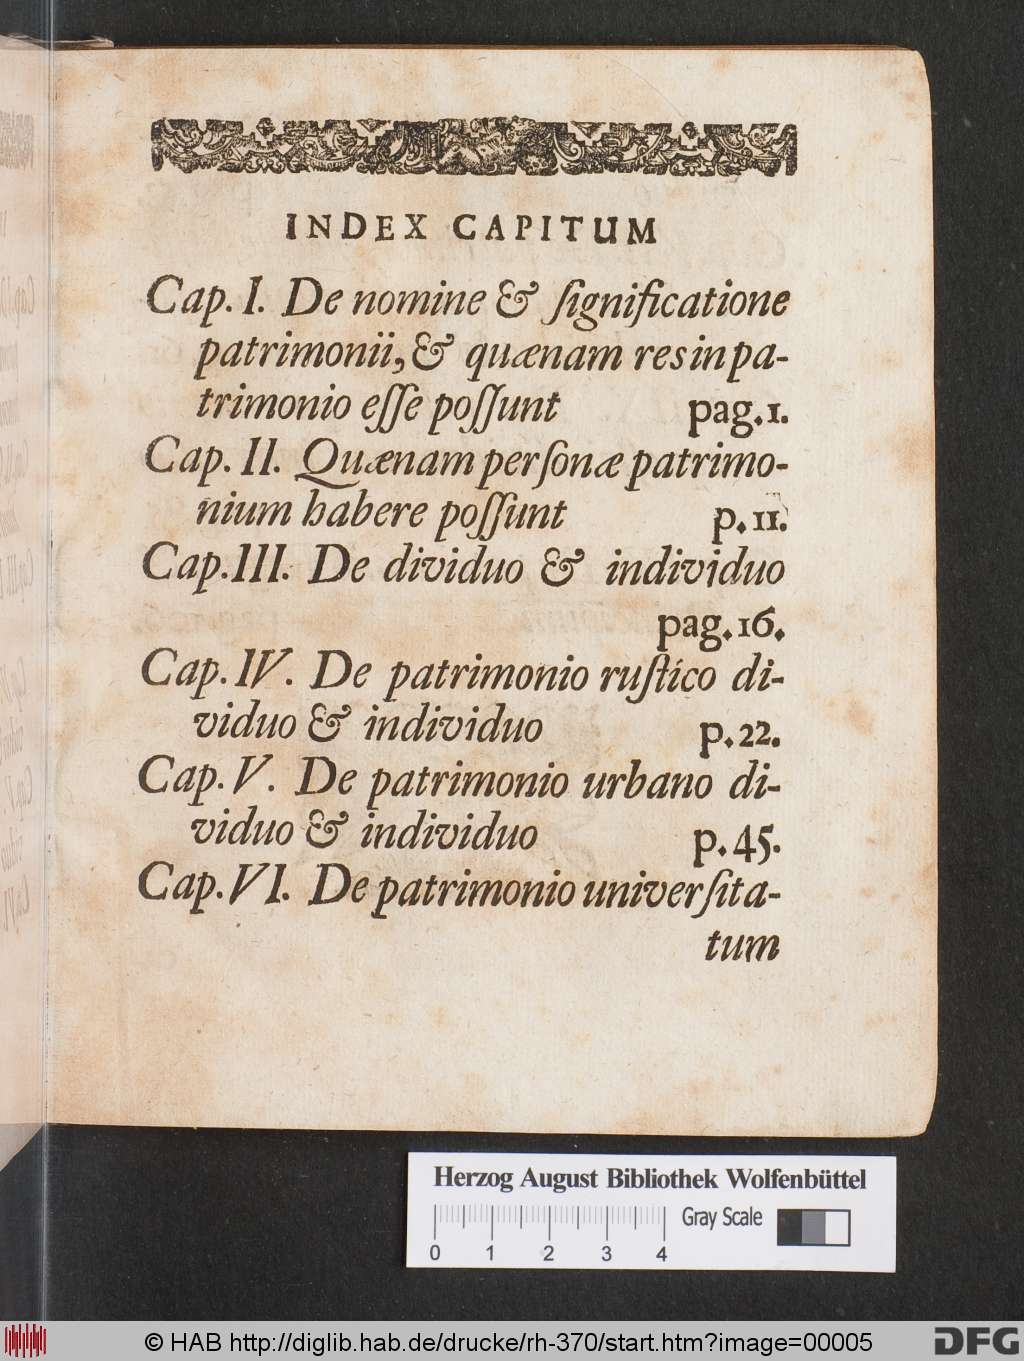 INDEX CAPITUM
Cap. I. De nomine & ſignificatione
patrimonii, & quænam res in pa-
trimonio eſſe poſſunt pag. 1.
Cap. II. Quænam perſonæ patrimo-
nium habere poſſunt p. 11.
Cap. III. De dividuo & individuo
pag. 16.
Cap. IV. De patrimonio ruſtico di-
viduo & individuo p. 22.
Cap. V. De patrimonio urbano di-
viduo & individuo p. 45.
Cap. VI. De patrimonio univerſita-
tum
Herzog August Bibliothek Wolfenbüttel
Gray Scale
0 1 2 3 4
© HAB http://diglib.hab.de/drucke/rh-370/start.htm?image=00005
DFG